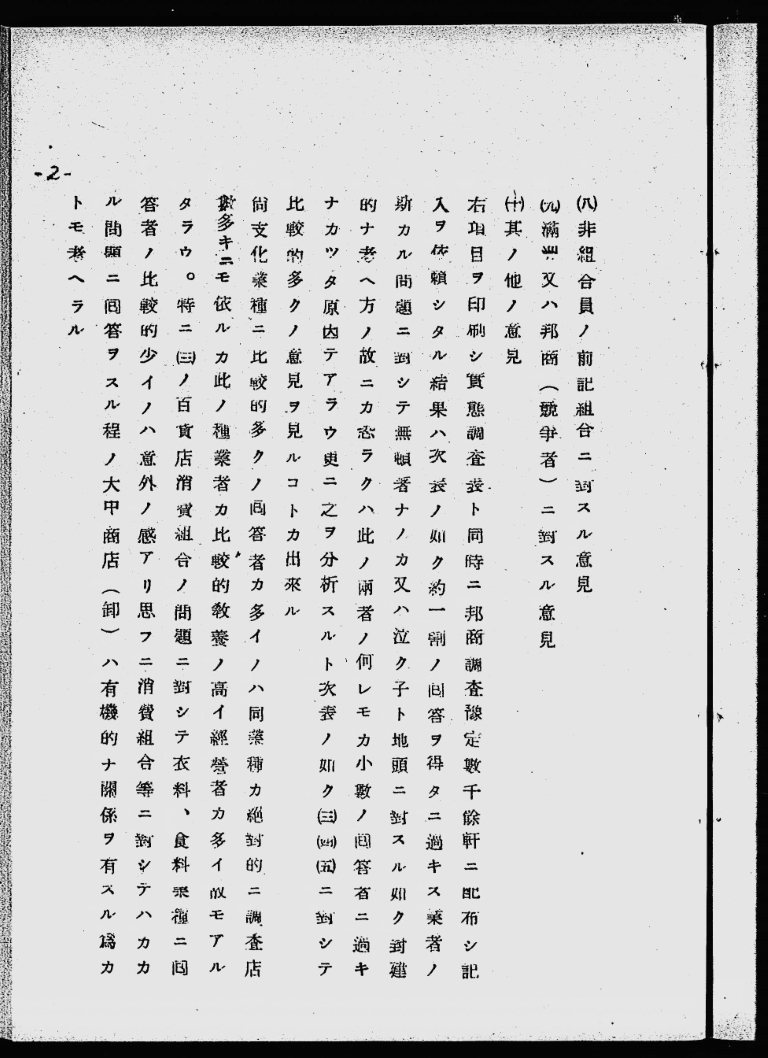 -2-
(八)非組合員ノ前記組合ニ對スル意見
(九)滿業又ハ邦商(競爭者)ニ對スル意見
(十)其ノ他ノ意見
右項目ヲ印刷シ實態調査表ト同時ニ邦商調査豫定數千餘軒ニ配布シ記
入ヲ依賴シタル結果ハ次表ノ如ク約一割ノ囘答ヲ得タニ過キス業者ノ
斯カル問題ニ對シテ無頓着ナノカ又ハ泣ク子ト地頭ニ對スル如ク封建
的ナ考ヘ方ノ故ニカ恐ラクハ此ノ兩者ノ何レモカ小數ノ囘答者ニ過キ
ナカツタ原因テアラウ更ニ之ヲ分析スルト次表ノ如ク(三)(四)(五)ニ對シテ
比較的多クノ意見ヲ見ルコトカ出來ル
尙文化業種ニ比較的多クノ囘答者カ多イノハ同業種カ絕對的ニ調査店
數多キニモ依ルカ此ノ種業者カ比較的敎養ノ高イ經營者カ多イ故モアル
タラウ。特ニ(三)ノ百貨店消費組合ノ問題ニ對シテ衣料、食料業種ニ囘
答者ノ比較的少イノハ意外ノ感アリ思フニ消費組合等ニ對シテハカカ
ル問題ニ囘答ヲスル程ノ大中商店(卸)ハ有機的ナ關係ヲ有スル爲カ
トモ考ヘラル